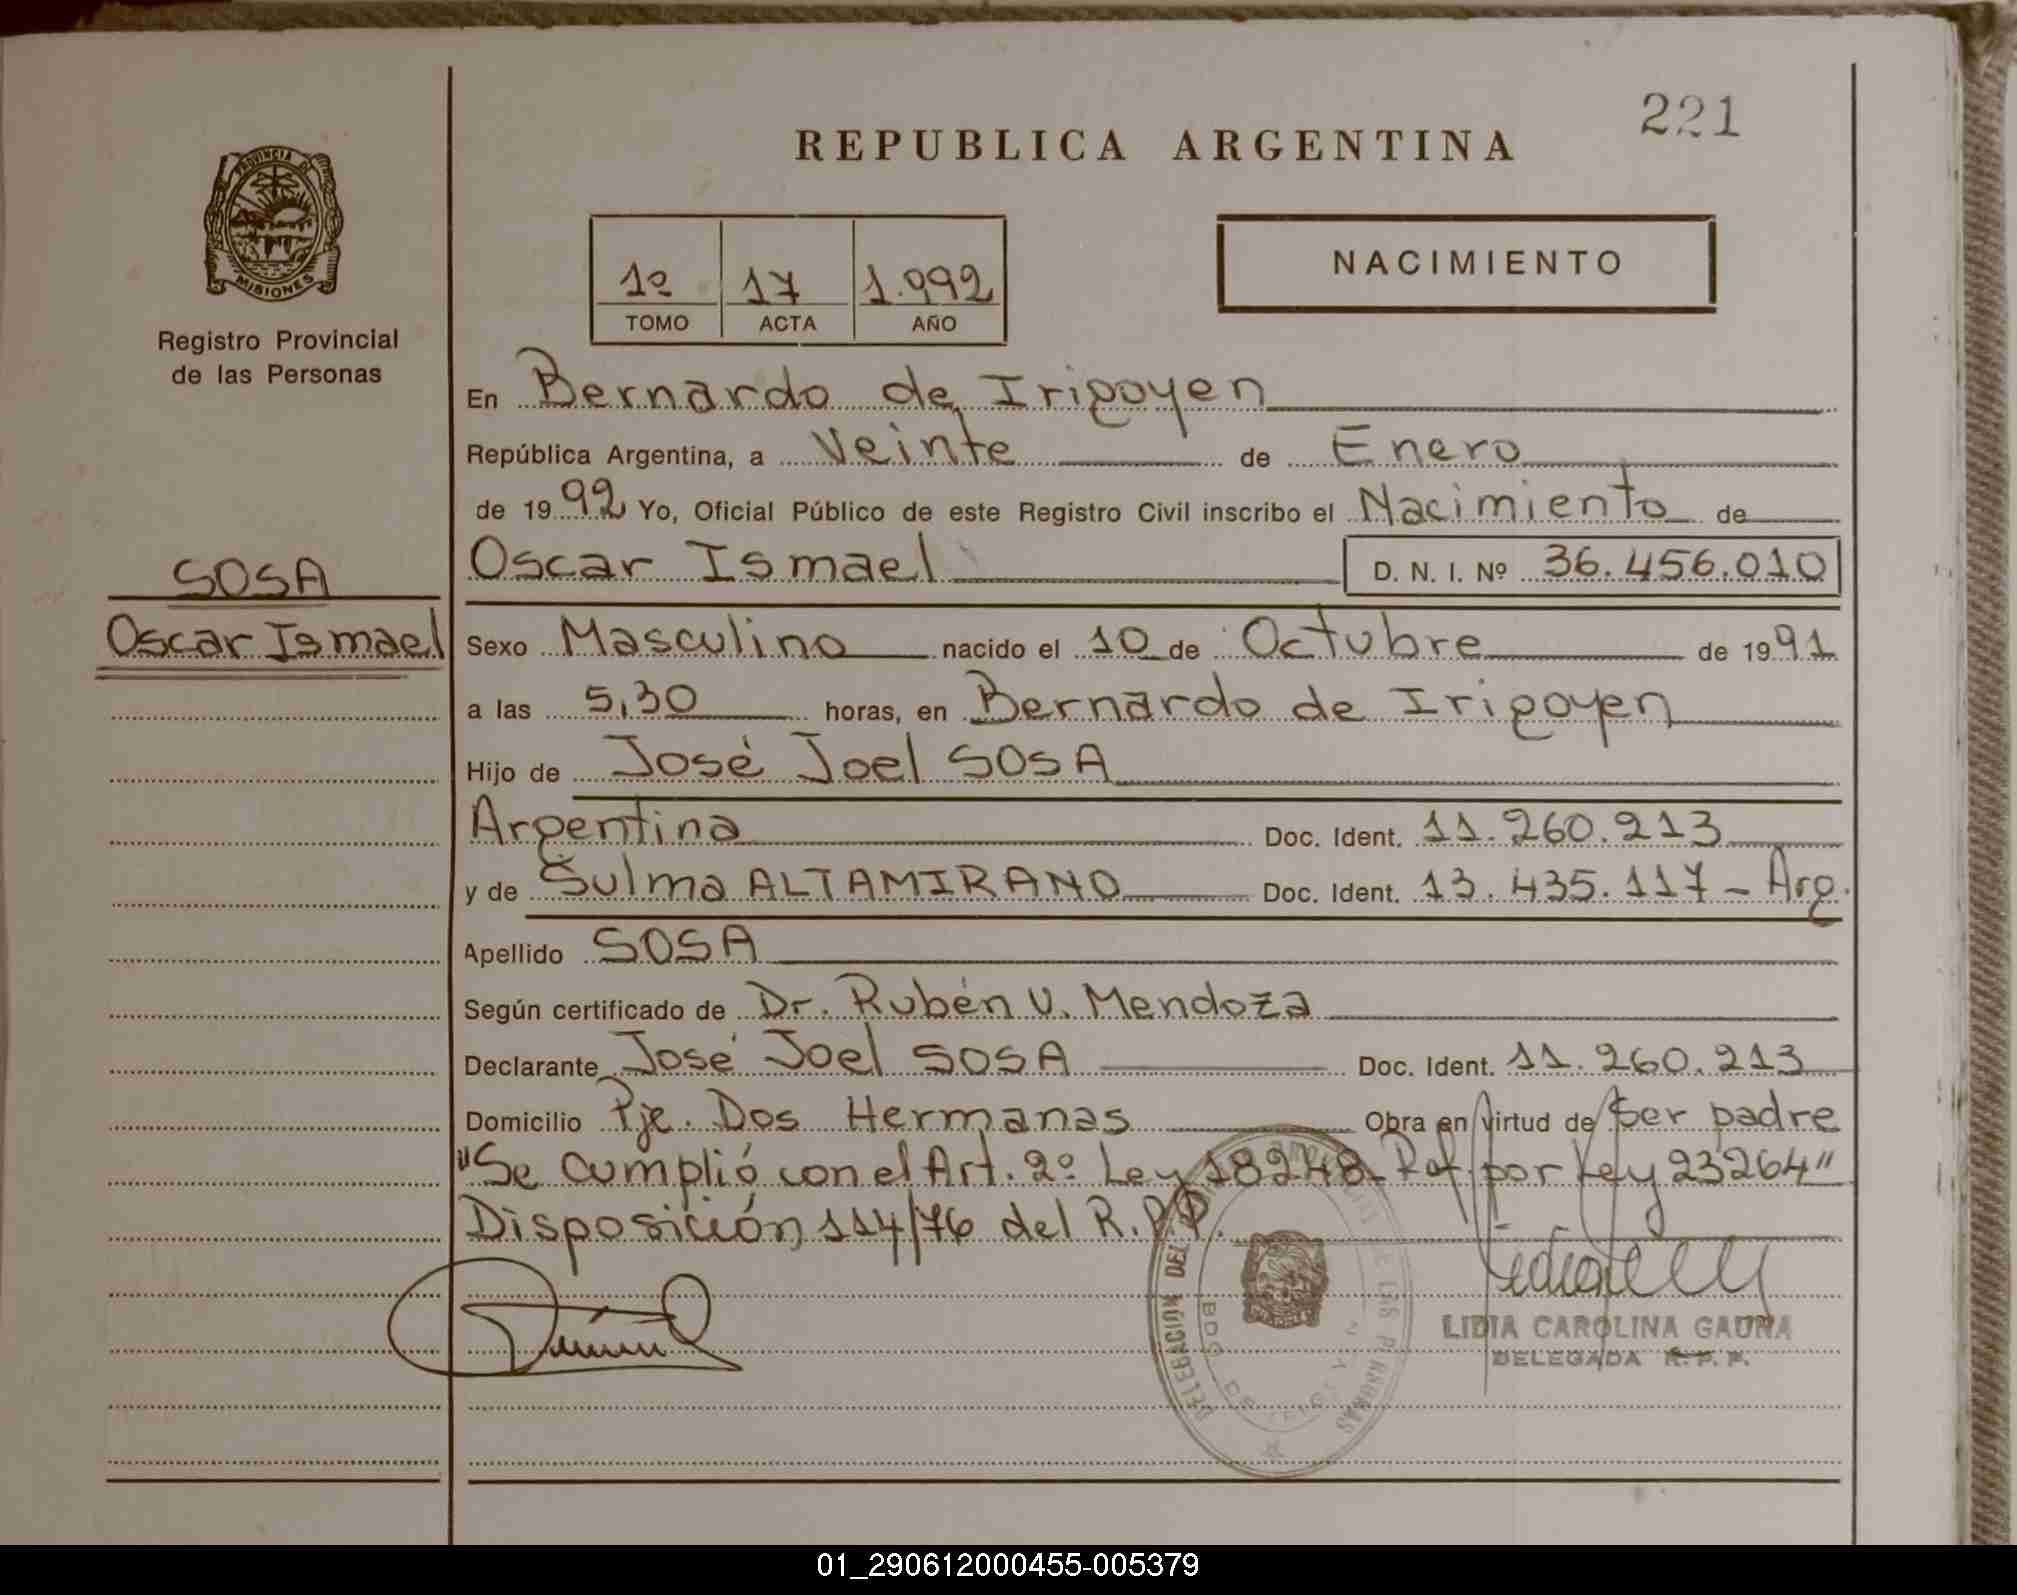 221
REPUBLICA ARGENTINA
PROVINCIA DE
MISIONES
Registro Provincial
de las Personas
NACIMIENTO
1º 17 1.992
TOMO ACTA AÑO
En Bernardo de Irigoyen
República Argentina, a Veinte de Enero
de 1992 Yo, Oficial Público de este Registro Civil inscribo el Nacimiento de
Oscar Ismael D. N. I. Nº 36.456.010
SOSA
Oscar Ismael
Sexo Masculino nacido el 10 de Octubre de 1991
a las 5,30 horas, en Bernardo de Irigoyen
Hijo de José Joel SOSA
Argentina Doc. Ident. 11.260.213
y de Sulma ALTAMIRANO Doc. Ident. 13.435.117 - Arg.
Apellido SOSA
Según certificado de Dr. Rubén V. Mendoza
Declarante José Joel SOSA Doc. Ident. 11.260.213
Domicilio Pje. Dos Hermanas Obra en virtud de Ser padre
"Se cumplió con el Art. 2º Ley 18248 Ref. por Ley 23264"
Disposición 114/76 del R.P.P.
DELEGACION DEL DE LAS PERSONAS
LIDIA CAROLINA GAUNA
DELEGADA R. P. P.
01_290612000455-005379